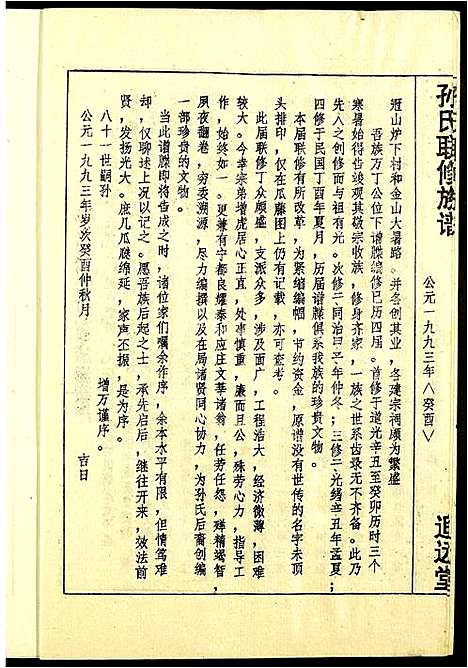 孙氏联修族谱
公元一九九三年〈癸酉〉
追远堂
冠山炉下村和金山大暑路。并各创其业，各建宗祠颇为繁盛
吾族万丁公位下谱牒编修已历四届。首修于道光辛丑至癸卯历时三个
寒暑始得告竣观其敬宗收族，修身齐家，一族之世系齿录无不齐备。此乃
先人之创修而与祖有光。次修于同治甲子年仲冬；三修于光绪辛丑年孟夏；
四修于民国丁酉年夏月，历届谱牒俱系我族的珍贵文物。
本届联修有所改革，为紧缩编幅，节约资金，原谱没有世传的名字未顶
头排印，仅在瓜藤图上仍有记载，亦可查考。
此届联修丁众顾盛，支派众多，涉及面广，工程浩大，经济微薄，困难
较大。今幸宗弟增虎居心正直，处事慎重，廉而且公，殊劳心力，指导工
作，始终如一。更兼有宁都良耀泰和应庄文华诸翁，任劳任怨，殚精竭智，
夙夜翻卷，穷委溯源，尽力编撰以及在局诸贤同心协力，为孙氏后裔创编
一部珍贵的文物。
当此谱牒即将告成之时，诸位家们嘱余作序，余本水平有限，但情笃难
却，仅聊述上况以记之。愿吾族后起之士，承先启后，继往开来，效法前
贤，发扬光大。庶几瓜瓞绵延，家声丕振，是为序。
八十一世嗣孙
增万谨序。
公元一九九三年岁次癸酉仲秋月
吉日